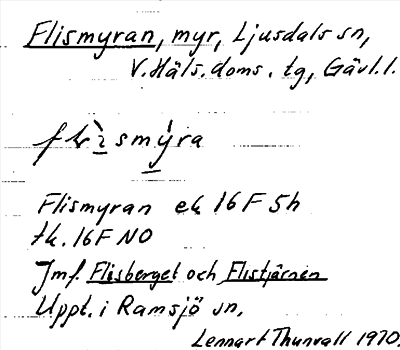 Flismyran, myr, Ljusdals sn,
V. Häls. doms. tg, Gävl. l.
Flismyran ek 16F 5h
tk. 16F NO
Jmf. Flisberget och Flistjärnen
Uppt. i Ramsjö sn.
Lennart Thunvall 1970.